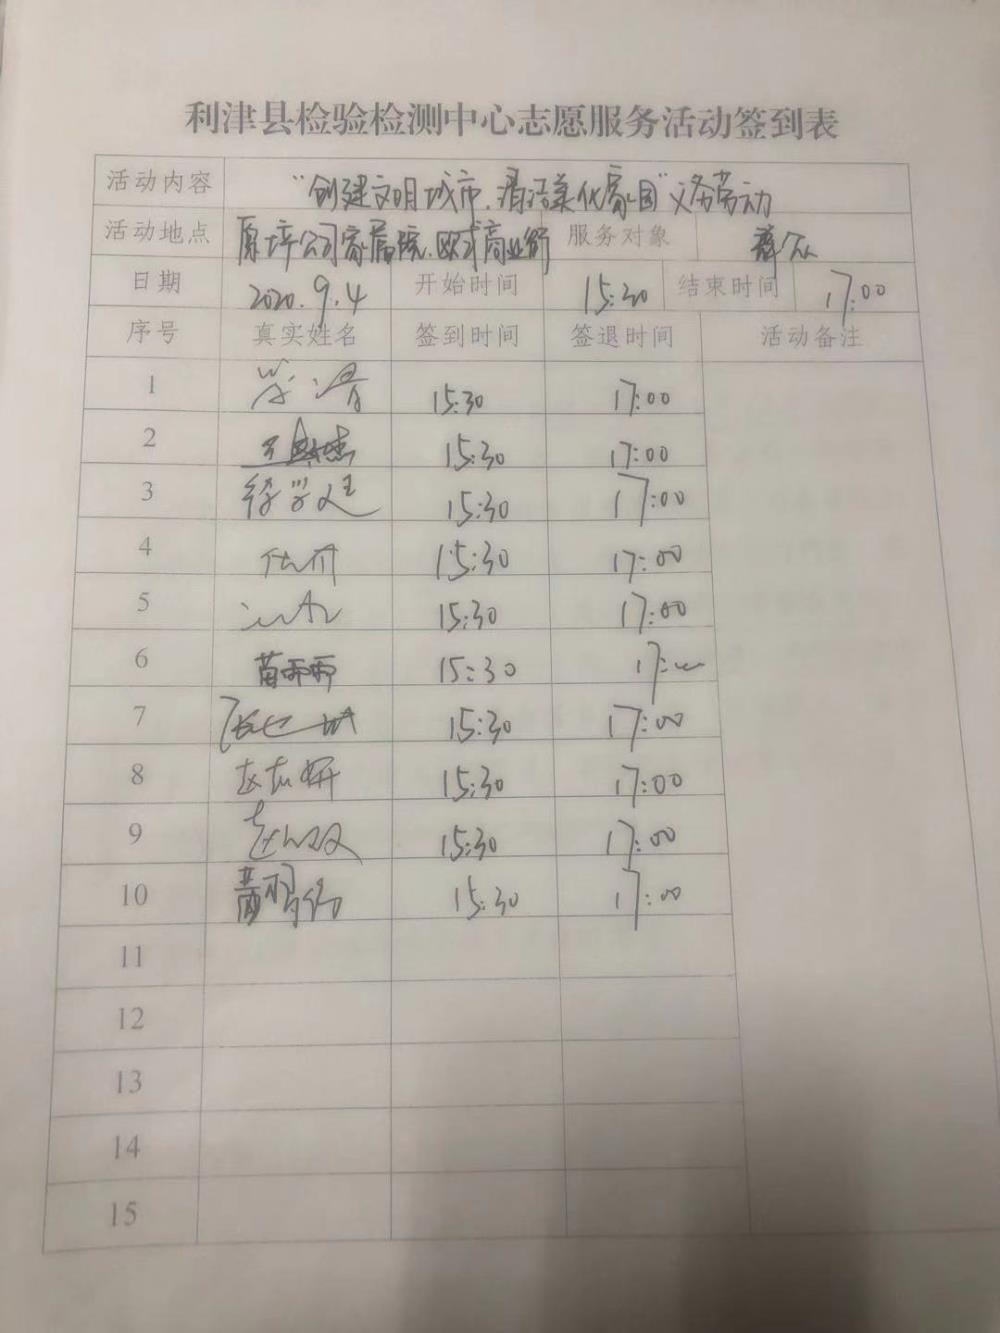 利津县检验检测中心志愿服务活动签到表
活动内容 "创建文明城市、清洁美化家园"义务劳动
活动地点 公司家属院、欧式商业街 服务对象 群众
日期 2020.9.4 开始时间 15:30 结束时间 17:00
序号 真实姓名 签到时间 签退时间 活动备注
1 15:30 17:00
2 15:30 17:00
3 15:30 17:00
4 15:30 17:00
5 15:30 17:00
6 苗雨雨 15:30 17:
7 15:30 17:00
8 15:30 17:00
9 15:30 17:00
10 15:30 17:00
11
12
13
14
15